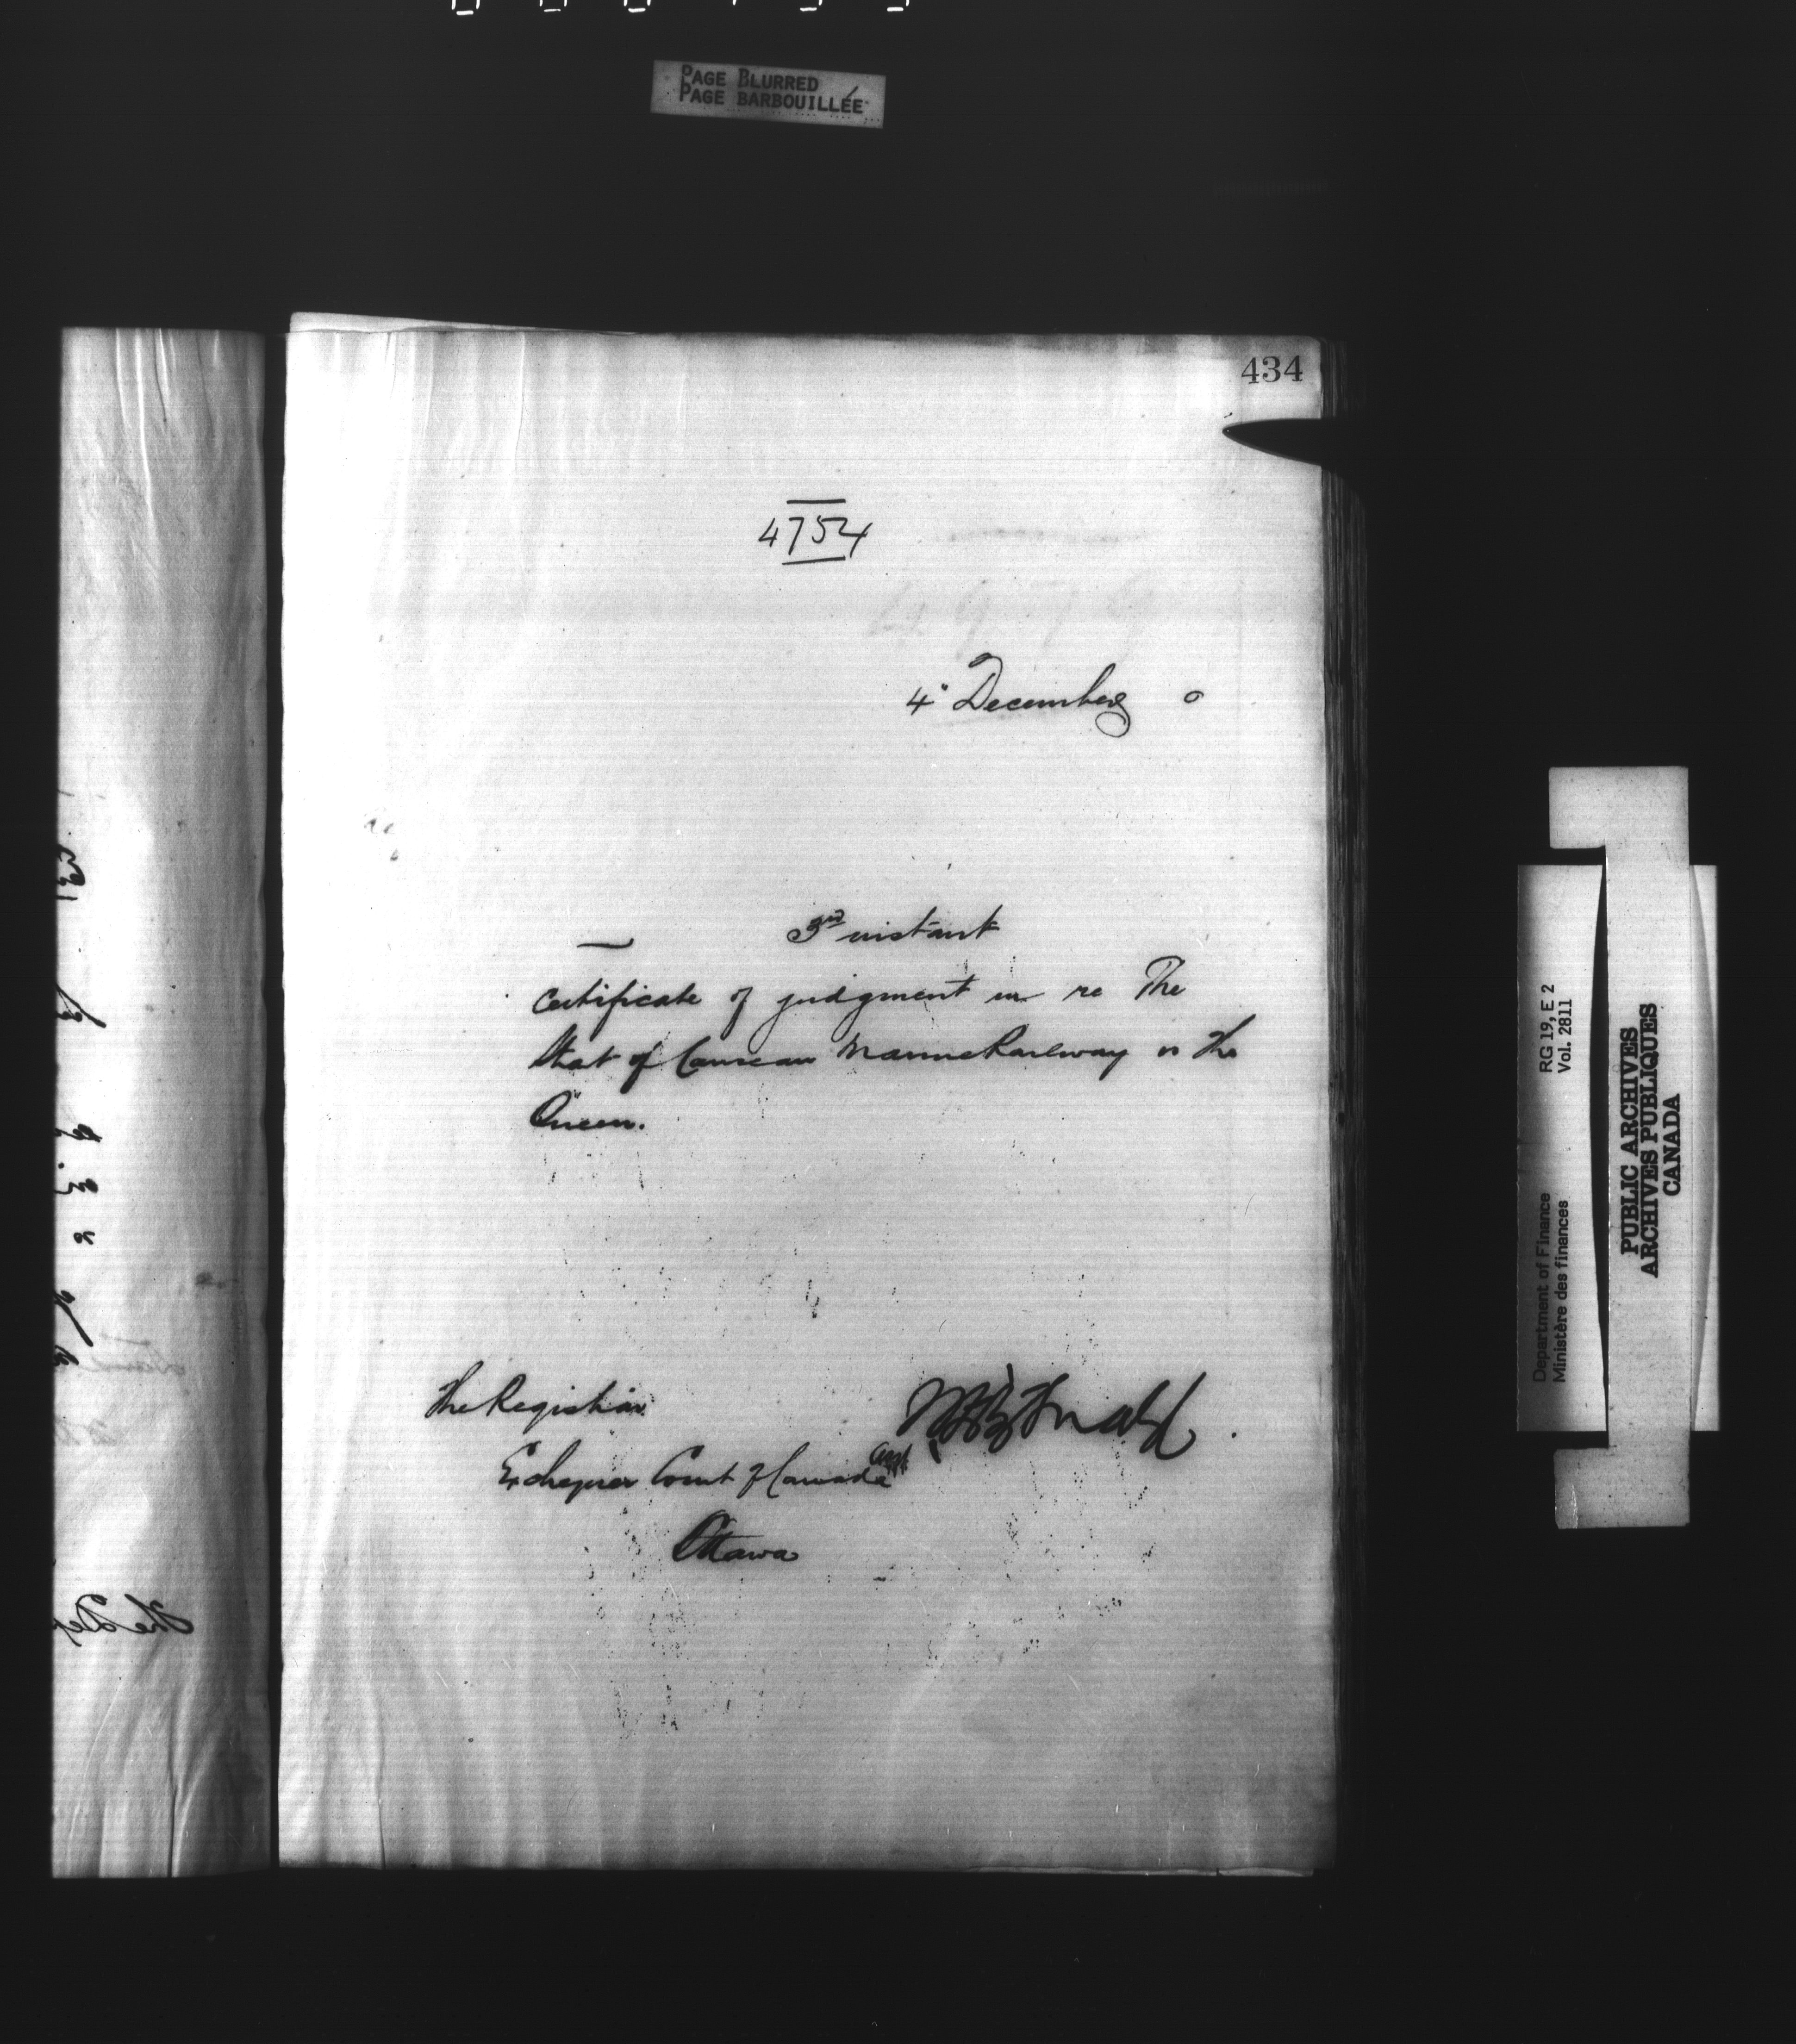 PAGE BLURRED
PAGE BARBOUILLÉE
434
4754
4" December 0
3rd instant
Certificate of judgment in re The
Strat of Canseau Marine Railway vs The
Queen.
The Registrar
Exchequer Court of Canada
Ottawa
The Dep
RG 19, E 2
Vol. 2811
Department of Finance
Ministère des finances
PUBLIC ARCHIVES
ARCHIVES PUBLIQUES
CANADA